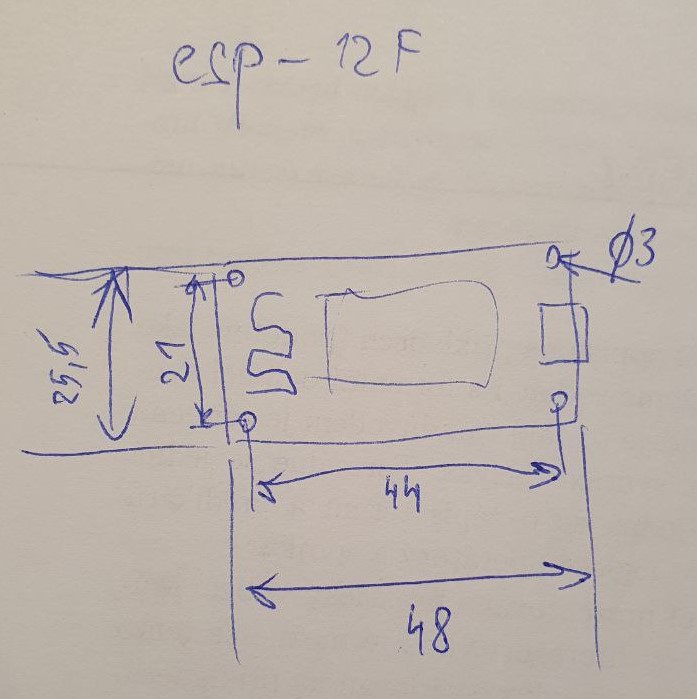 esp-12F
Ø3
25,5
21
44
48